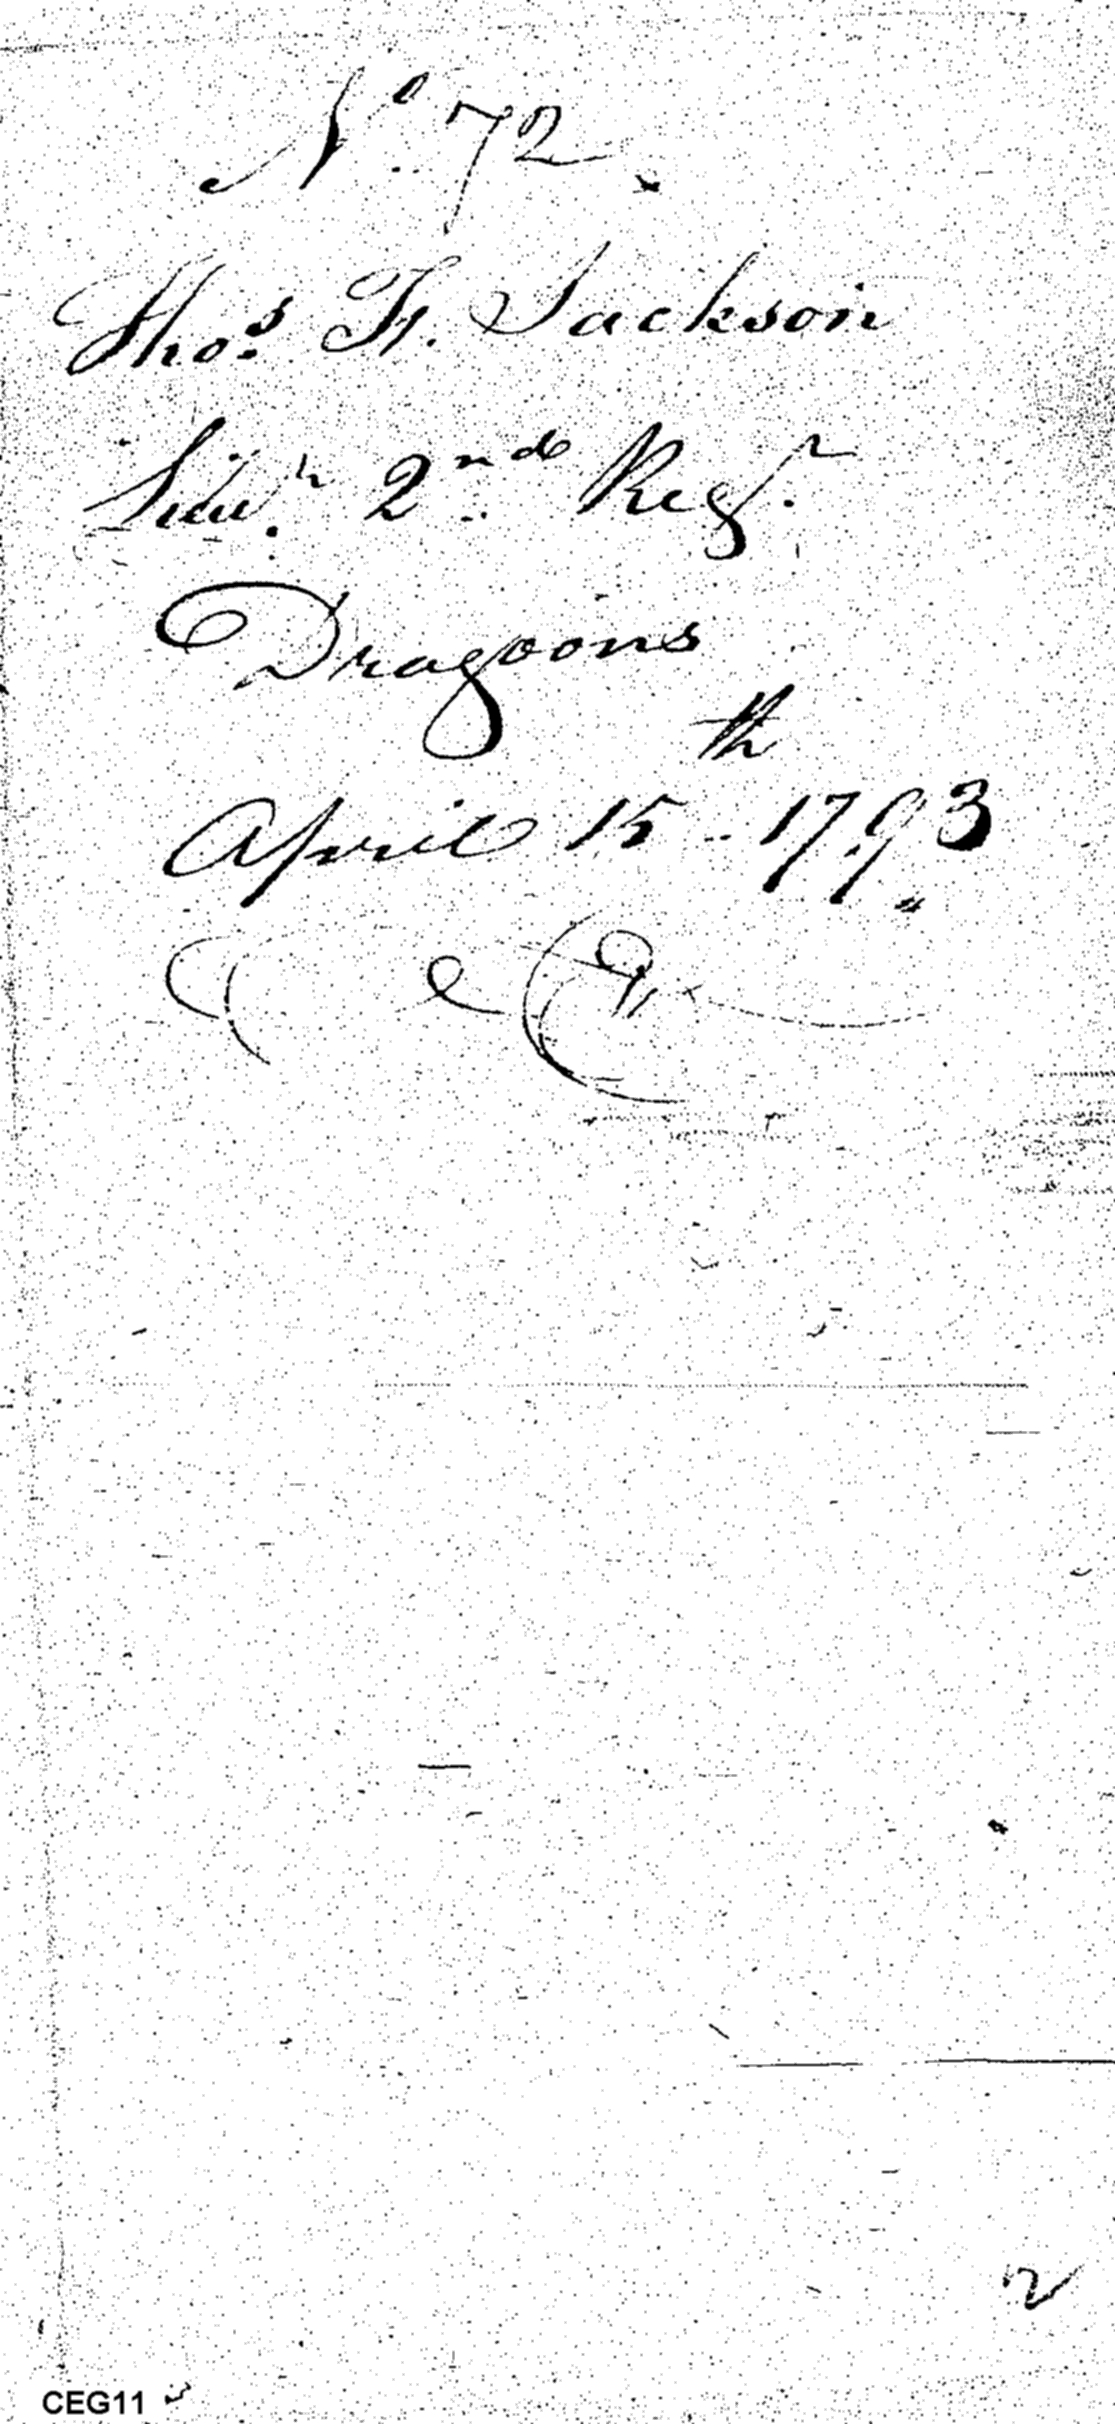 No. 72
Thos. H. Jackson
Lieut. 2nd. Regt.
Dragoons
April 15th 1793
2
CEG11